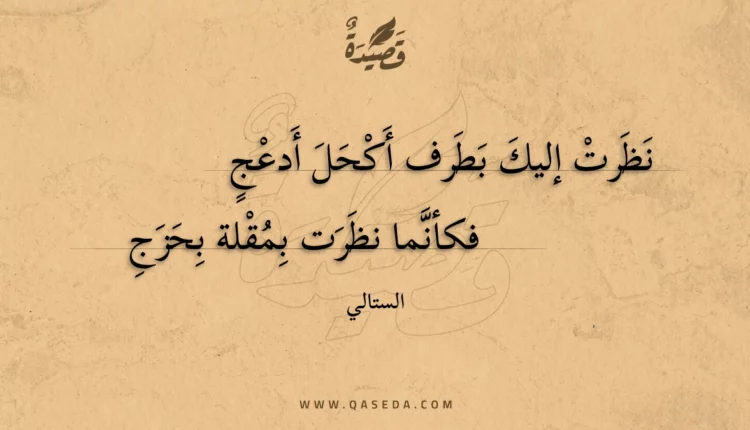 قَصِيْدَةٌ
نَظَرَتْ إليكَ بَطَرَف أَكْحَلَ أَدعْجٍ
فكأنَّما نظَرَت بِمُقْلة بِحَزَجِ
الستالي
WWW.QASEDA.COM